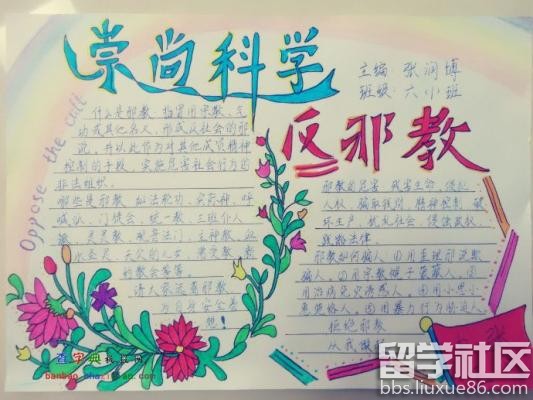 崇尚科学
主编:张润博
班级:六小班
反邪教
Oppose the cult
什么是邪教,指冒用宗教、气
功或其他名义,形成反社会的邪
说,并以此作为对其他成员精神
控制的手段,实施危害社会行为的
非法组织。
哪些是邪教 如法轮功、实际神、呼
喊派、门徒会、统一教、三班仆人
派、灵灵教、观音法门、主神教、血
水圣灵、天父的儿女
教会等等。
请大家远离邪教
为自身安全着
想!
邪教的危害,残害生命、侵犯
人权、骗取钱财、精神控制、破
坏生产、扰乱社会、侵蚀政权
践踏法律。
邪教如何骗人,①用歪理邪说欺
骗人。②用宗教幌子蒙蔽人。③
用治病免灾诱惑人。④用小恩小
惠笼络人。⑤用暴力行为胁迫人
拒绝邪教
从我做
查字典
留学社区
bbs.liuxue86.com